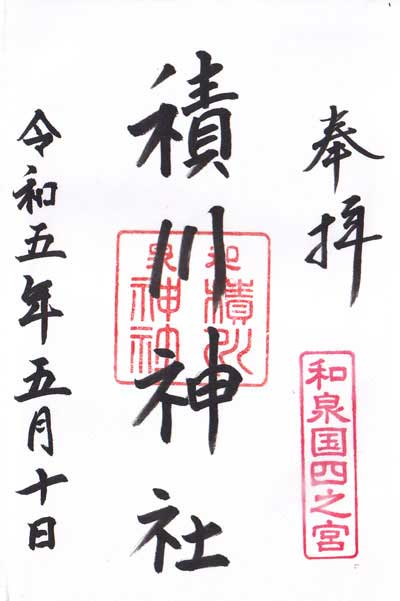 奉拝
和泉国四之宮
積川神社
和泉
積川
神社
令和五年五月十日